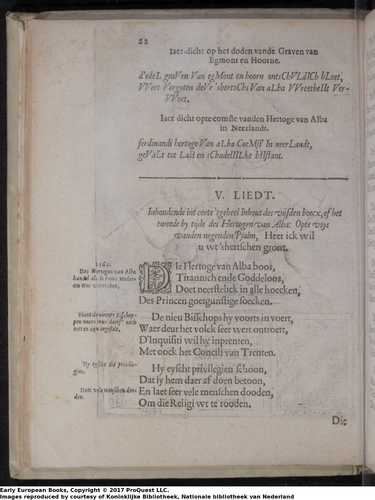 22
Iaer-dicht op het dooden vande Graven van
Egmont en Hoorne.
VVert Vergoten
VVort.
Iaer dicht opte comste vanden Hertoge van Alba
in Neerlandt.
ferdinandi hertoge Van aLba CoeMst In neerLandt,
V. LIEDT.
Inhoudende int corte 'tgeheel Inhout des vijfden boecx, of het
tweede by tyde des Hertogen van Alba: Opte wijs
vanden negenden Psalm, Heer ick wil
u wt 'shertschen gront.
DIe Hertoge van Alba boos,
Tirannich ende Goddeloos,
Doet neerstelick in alle hoecken,
Des Princen goetgunstige soecken.
De nieu Bisschops hy voorts in voert,
Waer deur het volck seer wert ontroert,
D'Inquisiti wil hy inprenten,
Met oock het Concili van Trenten.
Hy eyscht privilegien schoon,
Dat sy hem daer af doen betoon,
En laet seer vele menschen dooden,
Om die Religi wt te rooden.
Die
Early European Books, Copyright © 2017 ProQuest LLC.
Images reproduced by courtesy of Koninklijke Bibliotheek, Nationale bibliotheek van Nederland